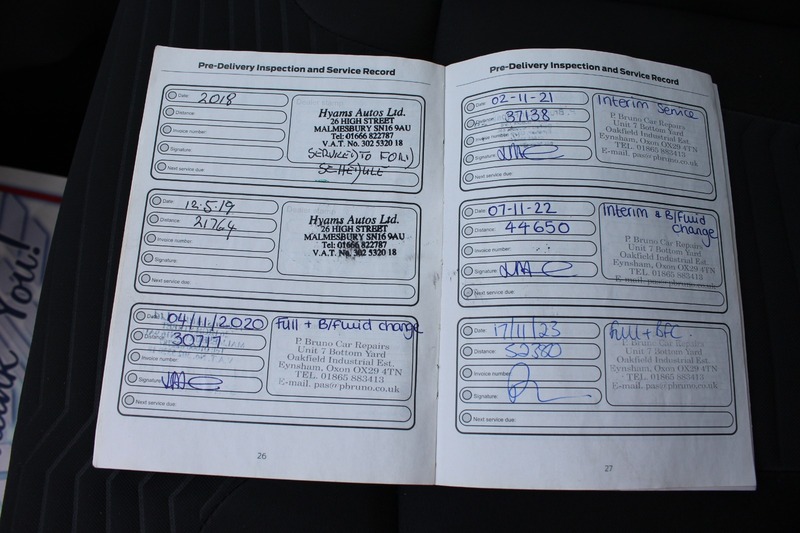 Pre-Delivery Inspection and Service Record
Date: 2018
Distance:
Invoice number:
Signature:
Next service due:
Hyams Autos Ltd.
26 HIGH STREET
MALMESBURY SN16 9AU
Tel: 01666 822787
V.A.T. No. 302 5320 18
SERVICED TO FORD
SCHEDULE
Date: 12.5.19
Distance: 21764
Invoice number:
Signature:
Next service due:
Hyams Autos Ltd.
26 HIGH STREET
MALMESBURY SN16 9AU
Tel: 01666 822787
V.A.T. No. 302 5320 18
Date: 04/11/2020
Distance: 30717
Invoice number:
Signature:
Next service due:
Full + B/Fluid change
P. Bruno Car Repairs
Unit 7 Bottom Yard
Oakfield Industrial Est.
Eynsham, Oxon OX29 4TN
TEL. 01865 883413
E-mail. pas@pbruno.co.uk
26
Pre-Delivery Inspection and Service Record
Date: 02-11-21
Distance: 37138
Invoice number:
Signature:
Next service due:
Interim Service
P. Bruno Car Repairs
Unit 7 Bottom Yard
Oakfield Industrial Est.
Eynsham, Oxon OX29 4TN
TEL. 01865 883413
E-mail. pas@pbruno.co.uk
Date: 07-11-22
Distance: 44650
Invoice number:
Signature:
Next service due:
Interim & B/Fluid
change
P. Bruno Car Repairs
Unit 7 Bottom Yard
Oakfield Industrial Est.
Eynsham, Oxon OX29 4TN
TEL. 01865 883413
E-mail. pas@pbruno.co.uk
Date: 17/11/23
Distance: 52380
Invoice number:
Signature:
Next service due:
Full + BFC.
P. Bruno Car Repairs
Unit 7 Bottom Yard
Oakfield Industrial Est.
Eynsham, Oxon OX29 4TN
TEL. 01865 883413
E-mail. pas@pbruno.co.uk
27
You!